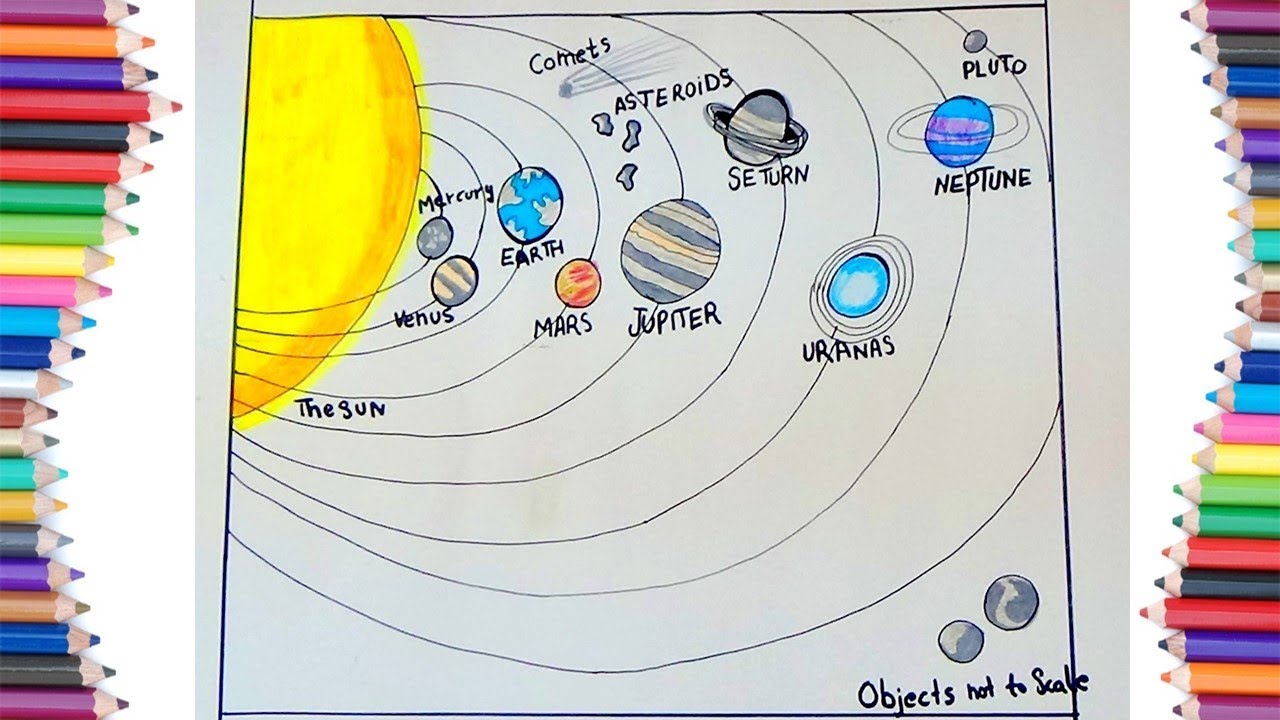 Comets
ASTEROIDS
PLUTO
SETURN
NEPTUNE
Mercury
EARTH
Venus
MARS
JUPITER
URANAS
The SUN
Objects not to Scale